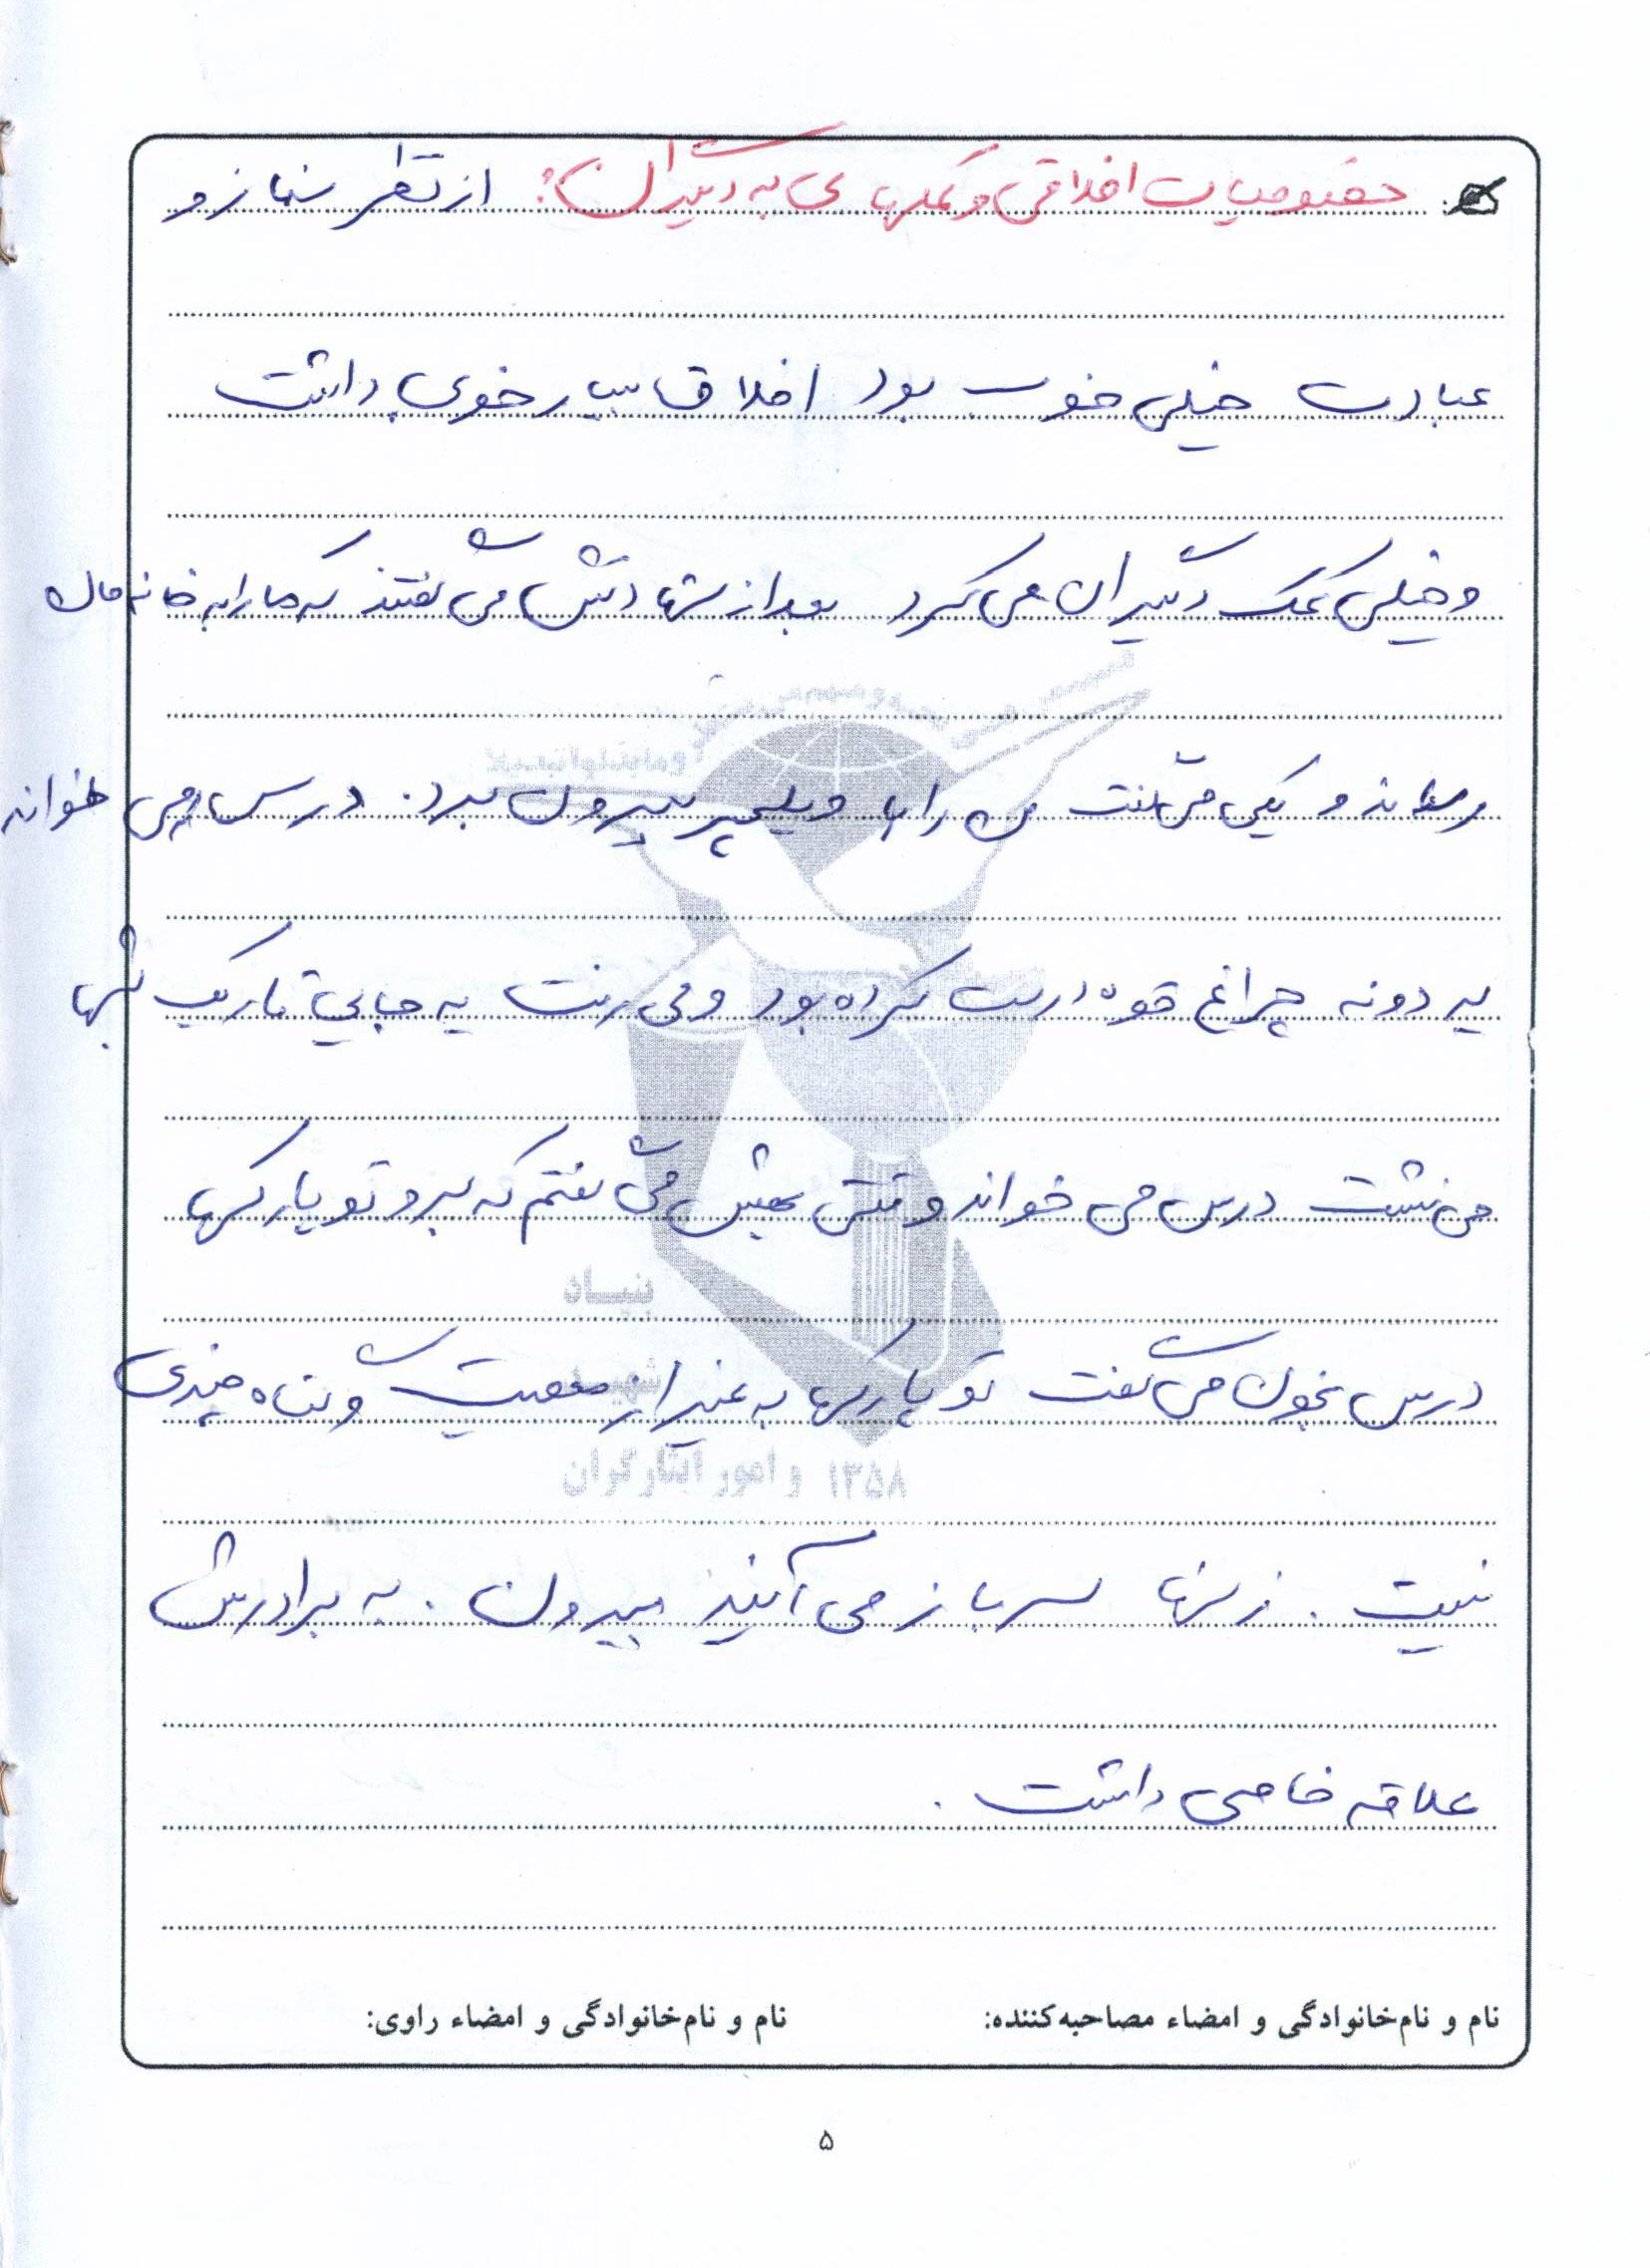 خصوصیات اخلاقی و کمکهای به دیگران: از نظر نماز و
عبادت خیلی خوب بود اخلاق بسیار خوبی داشت
و خیلی کمک دیگران می کرد بعد از شهادتش می گفتند که ما را به خانه مان
رساند و یکی می گفت من را با ویلچیر بیرون می برد. درس می خواند
یه دونه چراغ قوه درست کرده بود و می رفت یه جایی تاریک شبها
می نشست درس می خواند وقتی بهش می گفتم که برو تو پارکها
درس بخون می گفت تو پارکها به غیر از معصیت و گناه چیزی
نیست . زنها سرباز می آیند بیرون . به برادرش
علاقه خاصی داشت .
بنیاد
شهید
۱۳۵۸ و امور ایثارگران
نام و نام‌خانوادگی و امضاء مصاحبه‌کننده: نام و نام‌خانوادگی و امضاء راوی:
۵